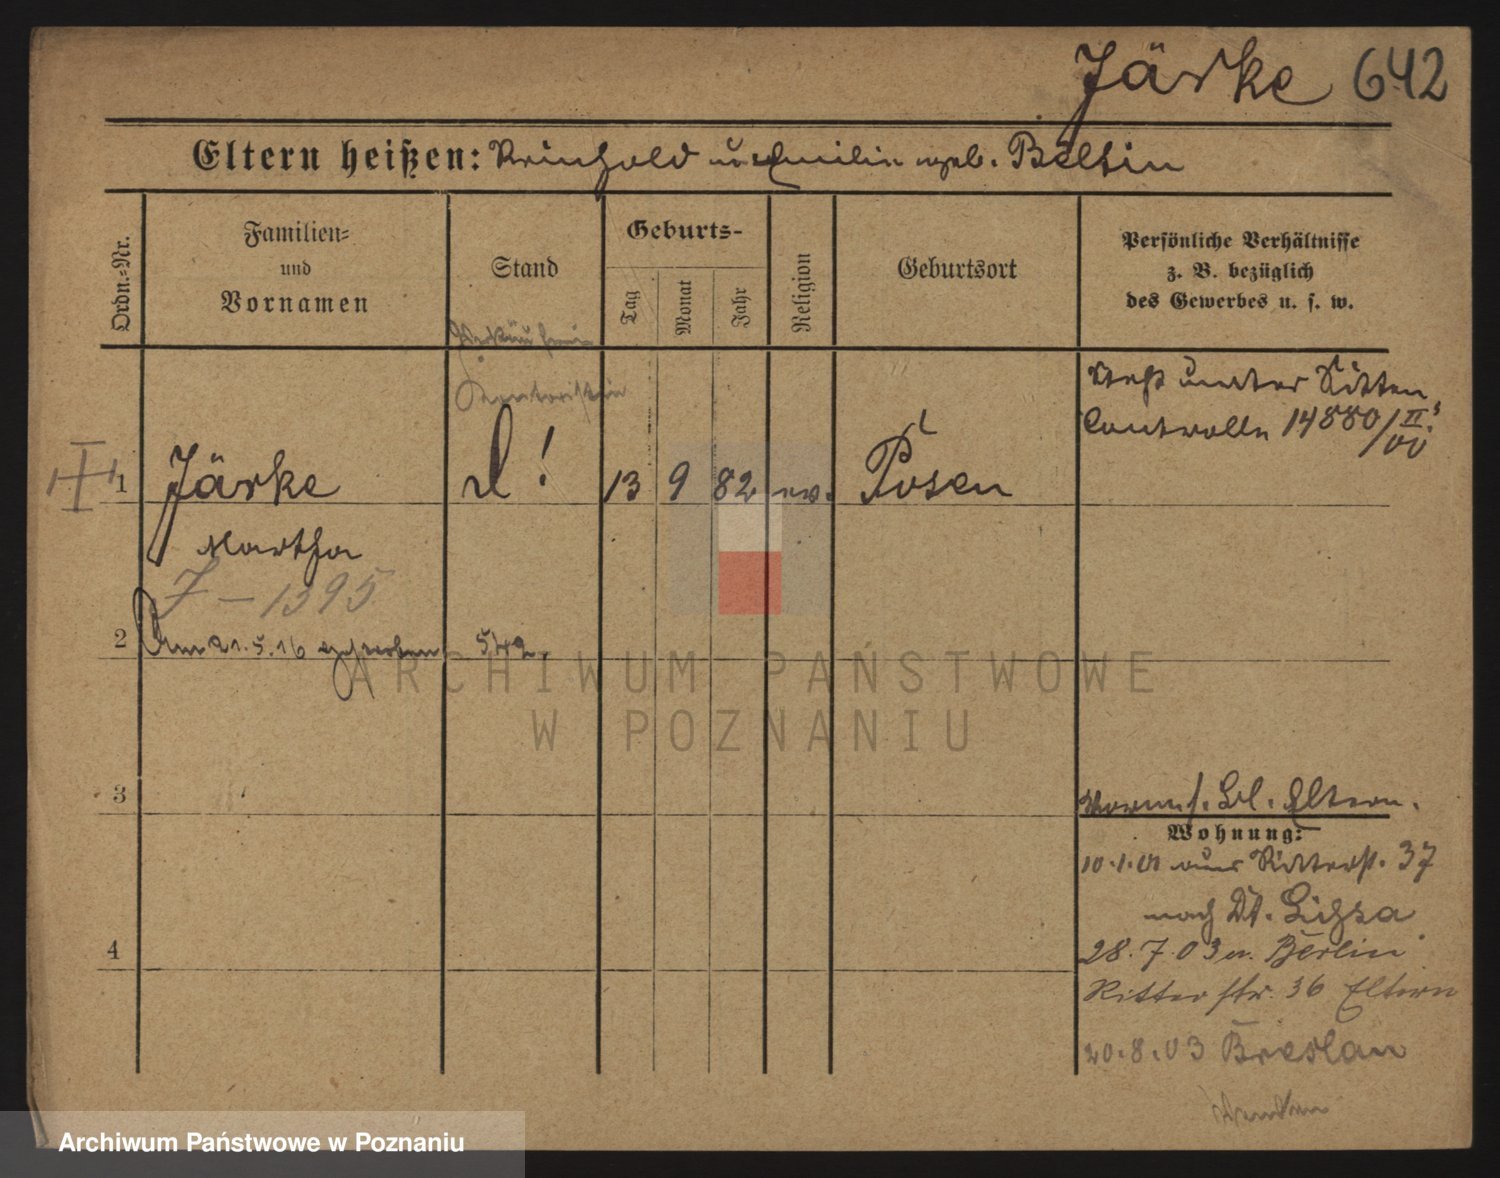 Järke 642
Eltern heißen: Reinhold u. Emilie geb. Beltin
Ordn.-Nr.
Familien-
und
Vornamen
Stand
Geburts-
Tag
Monat
Jahr
Religion
Geburtsort
Persönliche Verhältnisse
z. B. bezüglich
des Gewerbes u. s. w.
Verkäuferin
Kontoristin
steht unter Sitten
Controlle 14880/II. 00
1
Järke
13 9 82 ev. Posen
Martha
J - 1395
2
Am 21.5.16 gestorben 542.
3
4
Eltern.
Wohnung:
10.1.01 aus Ritterst. 37
nach Dt. Lissa
28.7.03 v. Berlin
Ritterstr. 36 Eltern
20.8.03 Breslau
ARCHIWUM PAŃSTWOWE
W POZNANIU
Archiwum Państwowe w Poznaniu